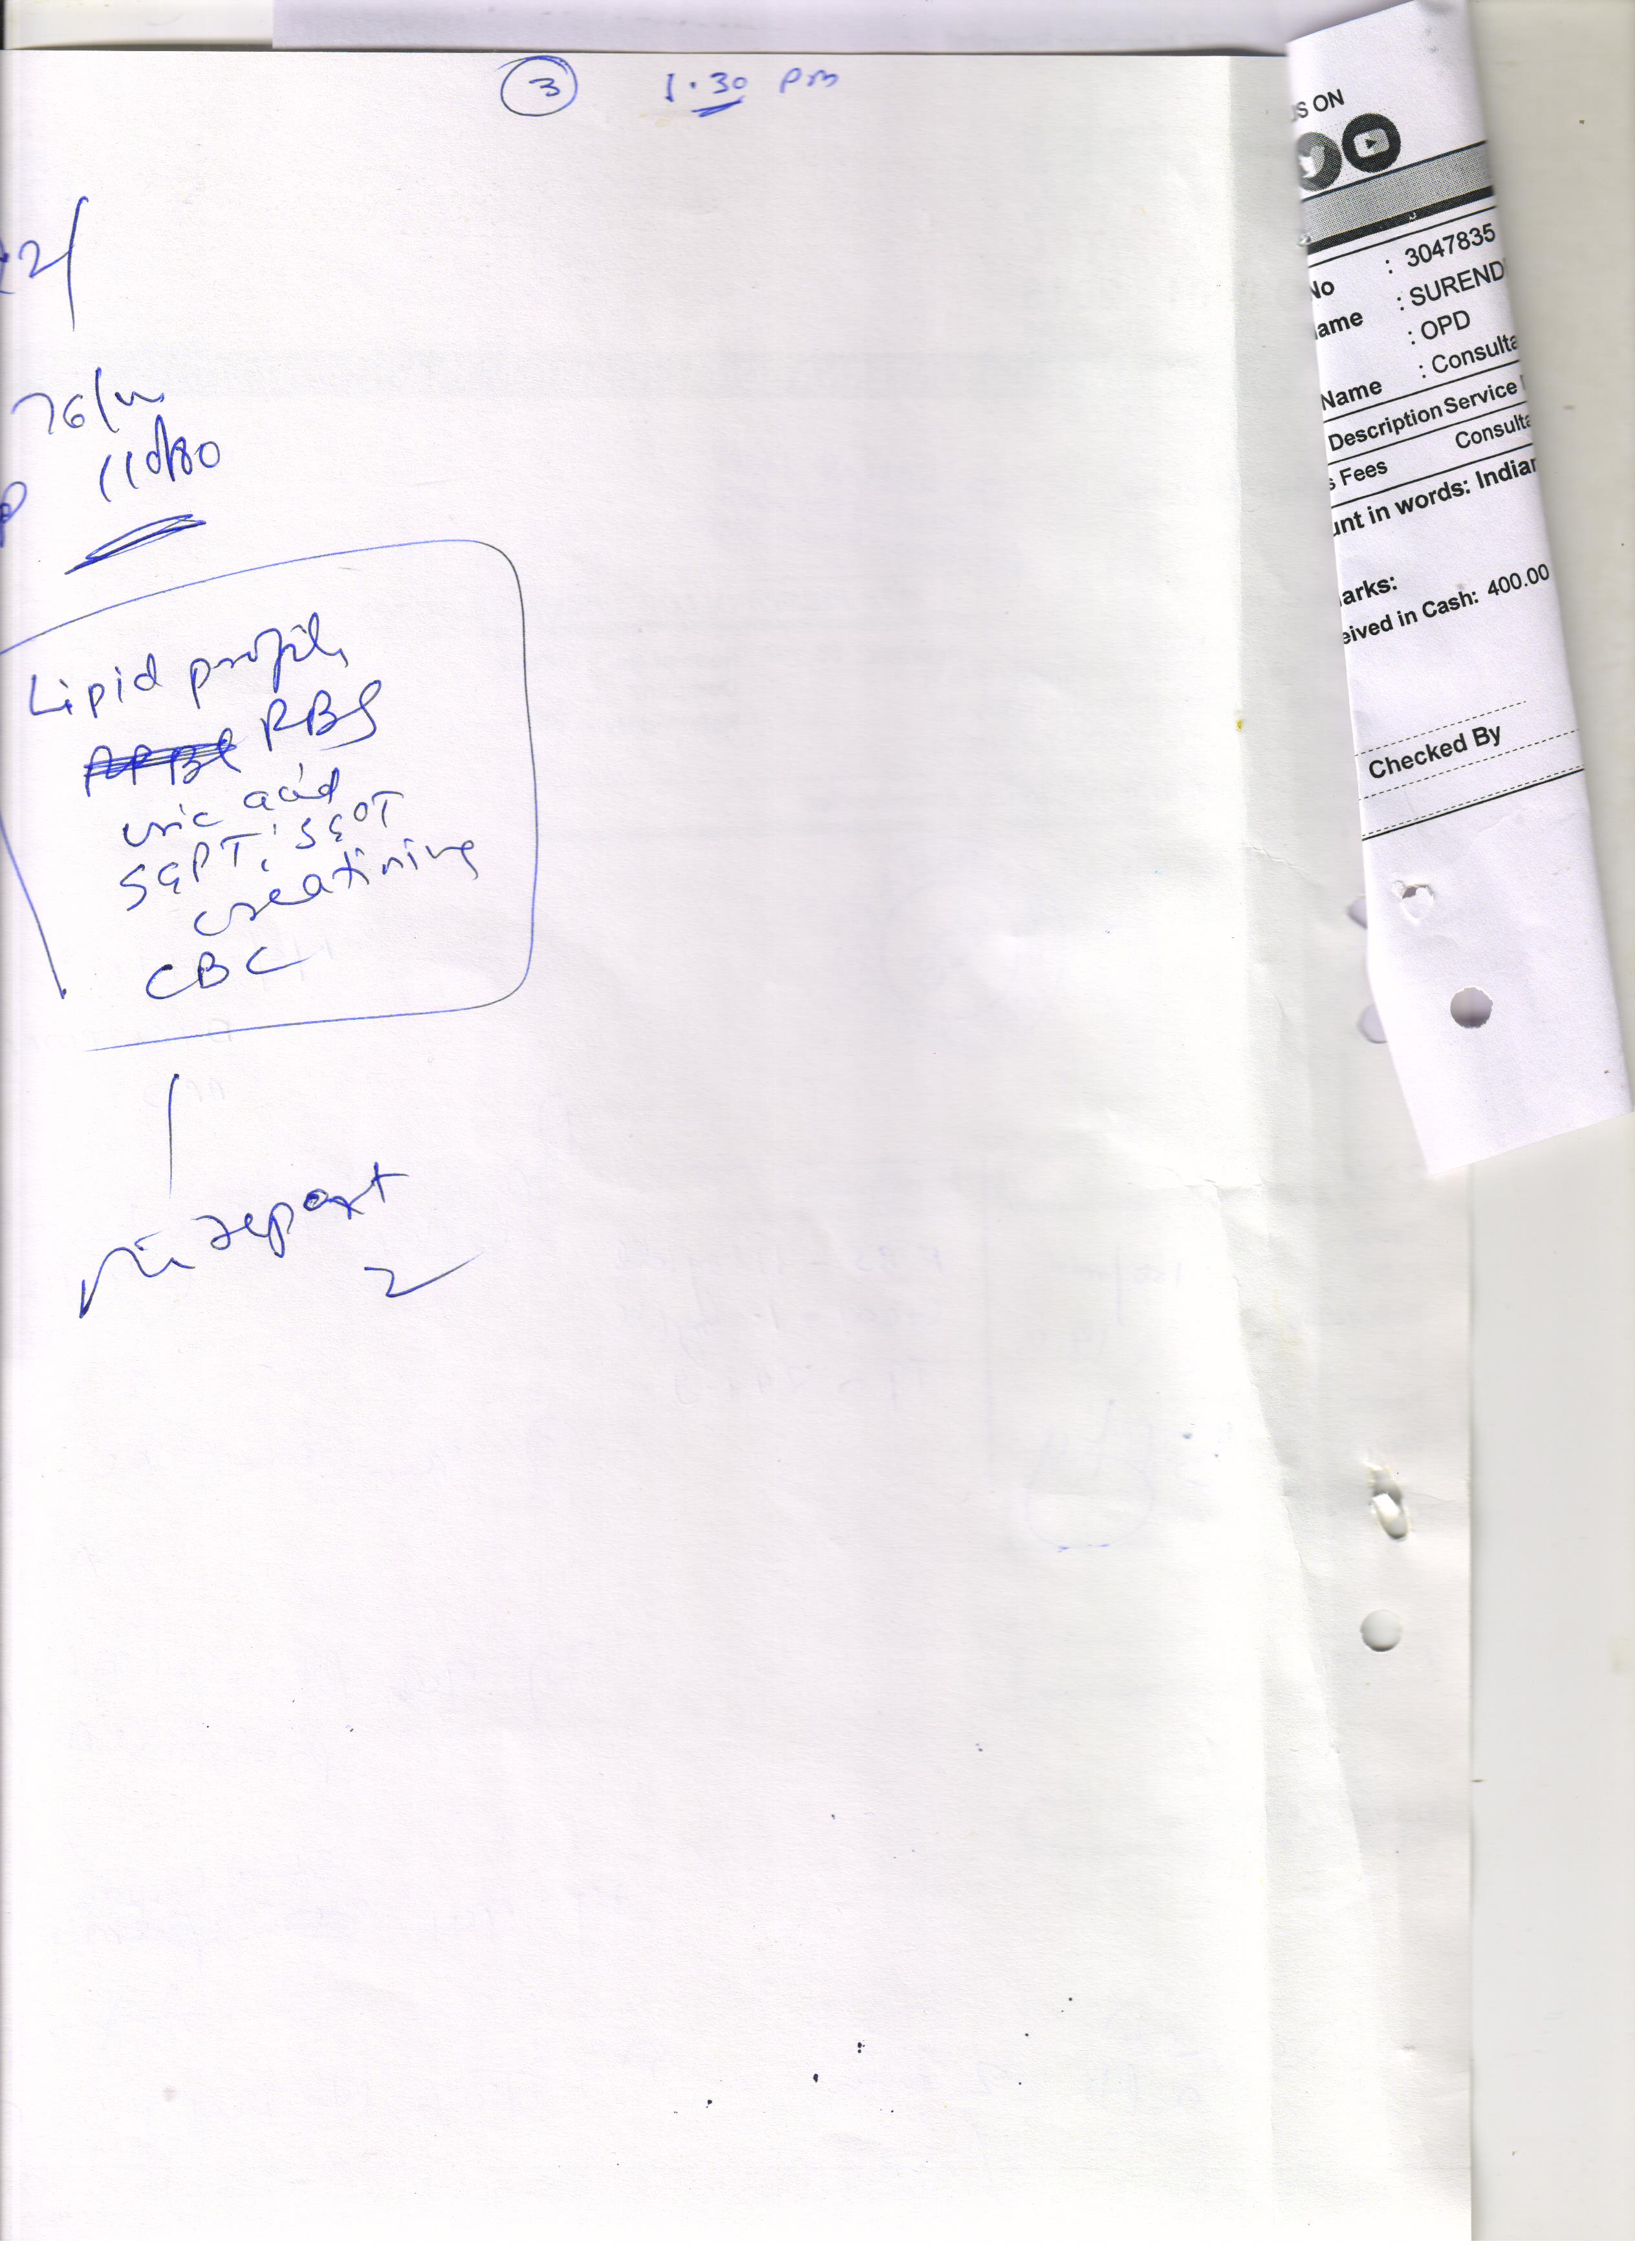 3 1.30 pm
2/
76/m
110/80
Lipid profile
RBS
uric acid
SGPT, SGOT
creatinine
CBC
report
US ON
No : 3047835
ame : SUREND
: OPD
Name : Consulta
Description Service
s Fees Consulta
unt in words: Indian
arks:
eived in Cash: 400.00
Checked By